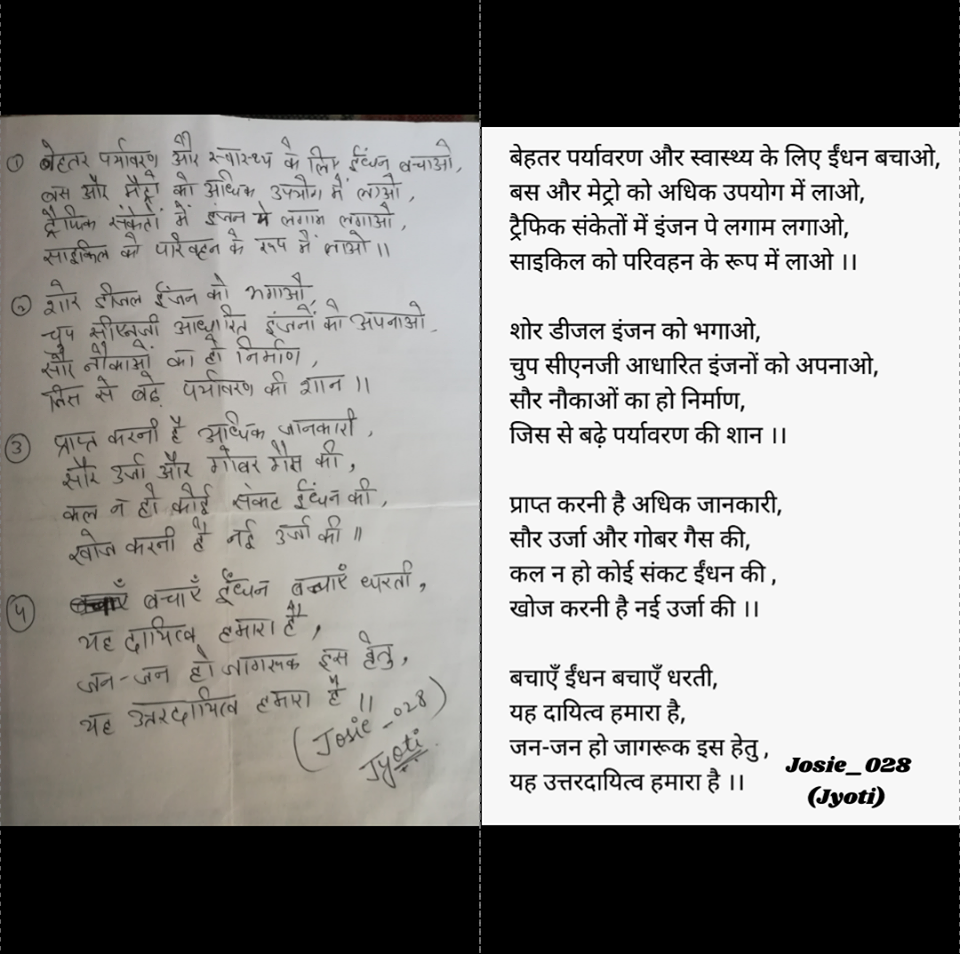 ① बेहतर पर्यावरण और स्वास्थ्य के लिए ईंधन बचाओ,
बस और मैट्रो को अधिक उपयोग में लाओ,
ट्रैफिक संकेतों में इंजन पे लगाम लगाओ,
साइकिल को परिवहन के रूप में लाओ ।।
② शोर डीजल ईंजन को भगाओ,
चुप सीएनजी आधारित इंजनों को अपनाओ,
सौर नौकाओं का हो निर्माण,
जिस से बढ़े पर्यावरण की शान ।।
③ प्राप्त करनी है अधिक जानकारी,
सौर उर्जा और गोबर गैस की,
कल न हो कोई संकट ईंधन की,
खोज करनी है नई उर्जा की ॥
④ बचाएँ ईंधन बचाएँ धरती,
यह दायित्व हमारा है,
जन-जन हो जागरूक इस हेतु,
यह उत्तरदायित्व हमारा है ।।
(Josie_028)
Jyoti
बेहतर पर्यावरण और स्वास्थ्य के लिए ईंधन बचाओ,
बस और मेट्रो को अधिक उपयोग में लाओ,
ट्रैफिक संकेतों में इंजन पे लगाम लगाओ,
साइकिल को परिवहन के रूप में लाओ ।।
शोर डीजल इंजन को भगाओ,
चुप सीएनजी आधारित इंजनों को अपनाओ,
सौर नौकाओं का हो निर्माण,
जिस से बढ़े पर्यावरण की शान ।।
प्राप्त करनी है अधिक जानकारी,
सौर उर्जा और गोबर गैस की,
कल न हो कोई संकट ईंधन की ,
खोज करनी है नई उर्जा की ।।
बचाएँ ईंधन बचाएँ धरती,
यह दायित्व हमारा है,
जन-जन हो जागरूक इस हेतु ,
यह उत्तरदायित्व हमारा है ।।
Josie_028
(Jyoti)